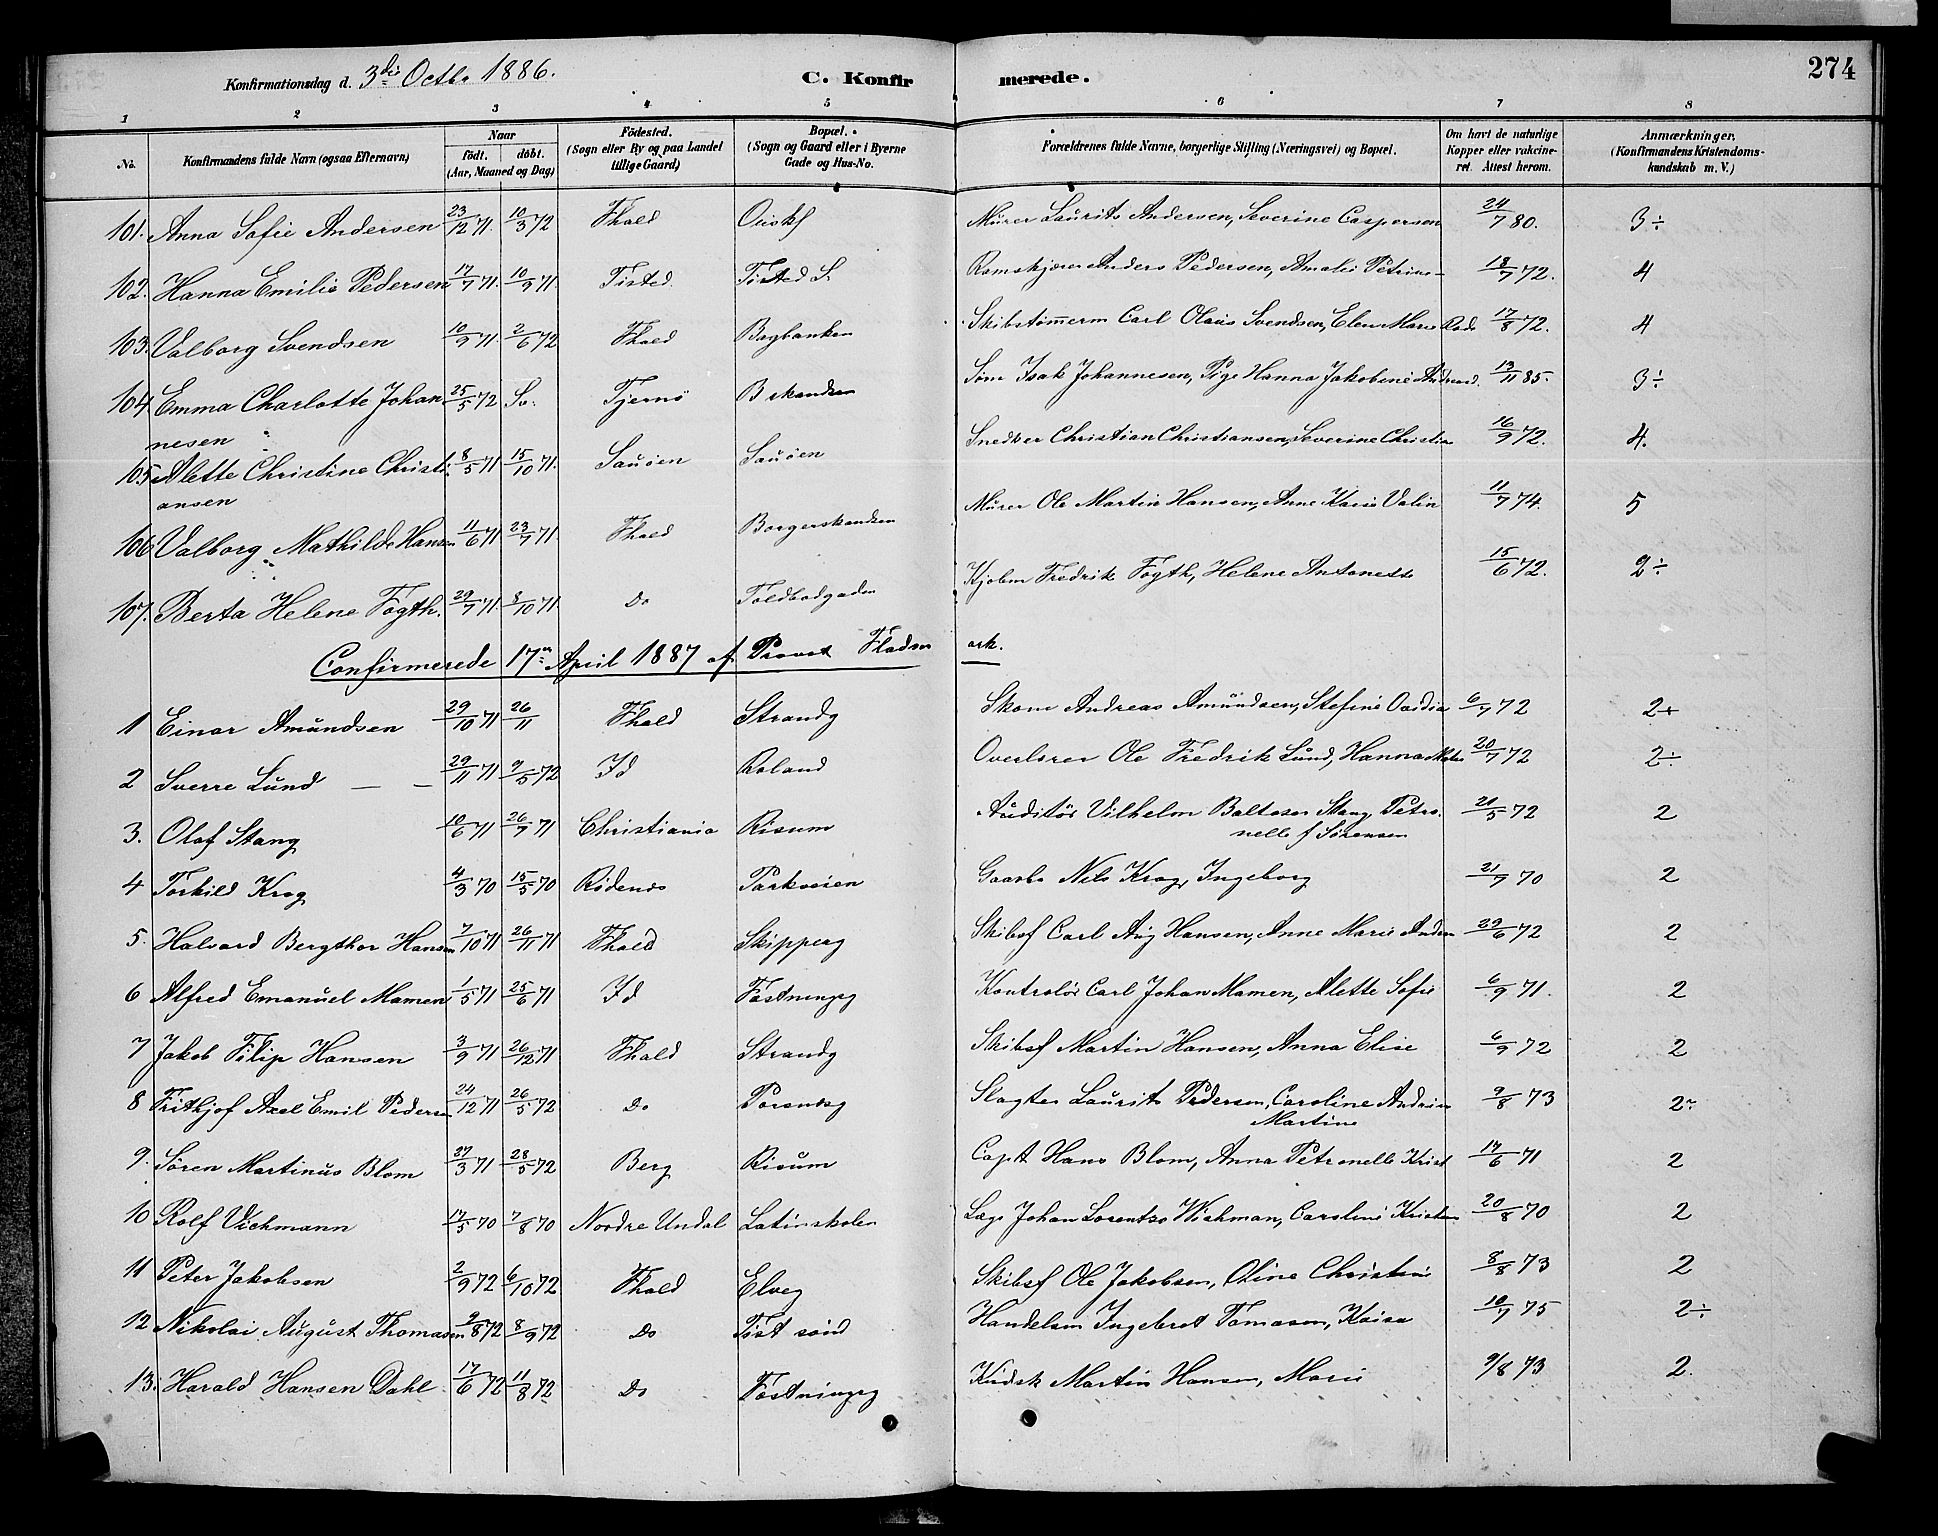 Konfirmationsdag d. 3die Octbr 1886. C. Konfirmerede. 274
1 2 3 4 5 6 7 8
No. Konfirmandens fulde Navn (ogsaa Efternavn) Naar födt. döbt. (Aar, Maaned og Dag) Födested. (Sogn eller By og paa Landet tillige Gaard) Bopæl. (Sogn og Gaard eller i Byerne Gade og Hus-No. Forældrenes fulde Navne, borgerlige Stilling (Næringsvei) og Bopæl. Om havt de naturlige Kopper eller vakcineret. Attest herom. Anmærkninger. (Konfirmandens Kristendomskundskab m. V.)
101. Anna Sofie Andersen 23/12 71. 10/3 72 Fhald Ouskf Mürer Laurits Andersen, Severine Caspersen 24/7 80. 3÷
102. Hanna Emilie Pedersen 17/7 71. 10/9 71. Tisted. Tisted S. Anders Pedersen, Amalie Petrine 18/7 72. 4
103. Valborg Svendsen 10/9 71 2/6 72 Fhald Bagbanken Skibstömmerm Carl Olaüs Svendsen, Elen Marie 17/8 72. 4
104 Emma Charlotte Johannesen 25/5 72 Tjernö B skandsen Söm Isak Johannesen, Pige Hanna Jakobine 13/11 85. 3÷
105 Alette Christine Christiansen 8/5 71 15/10 71. Sauöen Sauöen Snedker Christian Christiansen, Severine Christia 16/9 72. 4.
106 Valborg Mathilde Hansen 11/6 71 23/7 71 Fhald Borgerskandsen Mürer Ole Martin Hansen, Anne Karie Valin 11/7 74. 5
107. Berta Helene Fogth. 29/7 71. 8/10 71. Do Toldbodgaden Kjöbm Fredrik Fogth, Helene Antonette 15/6 72. 2÷
Confirmerede 17de April 1887 af Provst Fladmark.
1 Einar Amündsen 29/10 71 26/11 Fhald Strandg Skom Andreas Amündsen, Stefine 6/7 72 2+
2 Sverre Lünd — — 29/11 71 9/5 72 Id Roland Overlærer Ole Fredrik Lünd, Hanna 20/7 72 2÷
3. Olaf Stang 10/6 71 26/7 71 Christiania Risum Aüditör Vilhelm Baltasar Stang, Petronelle f Sörensen 21/5 72 2
4 Torkild Krog 4/3 70 15/5 70 Rödenæs Parkveien Gaarbr Nils Krog, Ingeborg 21/7 70 2
5. Halvard Bergthor Hansen 7/10 71 26/11 71 Fhald Skipperg Skibsf Carl Aüg Hansen, Anne Marie Anden 29/6 72 2
6 Alfred Emanüel Mamen 1/5 71 25/6 71 Id Fæstningsg Kontrolör Carl Johan Mamen, Alette Sofie 6/9 71. 2
7 Jakob Filip Hansen 3/9 71 26/12 71 Fhald Strandg Skibsf Martin Hansen, Anna Elise 6/9 72 2
8 Frithjof Axel Emil Pedersen 24/12 71 26/5 72 Do Slagter Laurits Pedersen, Caroline Andrine Martine 9/8 73 2
9. Sören Martinüs Blom 27/3 71 28/5 72 Berg Risüm Capt Hans Blom, Anna Petronelle Krist 17/6 71 2
10 Rolf Vichmann 17/5 70 7/8 70 Nordre Undal Latinskolen Læge Johan Lorentso Wichman, Caroline Kristen 20/8 70 2
11 Peter Jakobsen 2/9 72 6/10 72 Fhald Elveg Skibsf Ole Jakobsen, Oline Christine 8/8 73 2
12 Nikolai Aügüst Thomasen 9/8 72 8/9 72 Do Tist Handelsm Ingebret Tomasen, Kaisa 10/7 75 2÷
13. Harald Hansen Dahl 17/6 72 11/8 72 Do Fæstningsg Küdsk Martin Hansen, Marie 9/8 73 2.